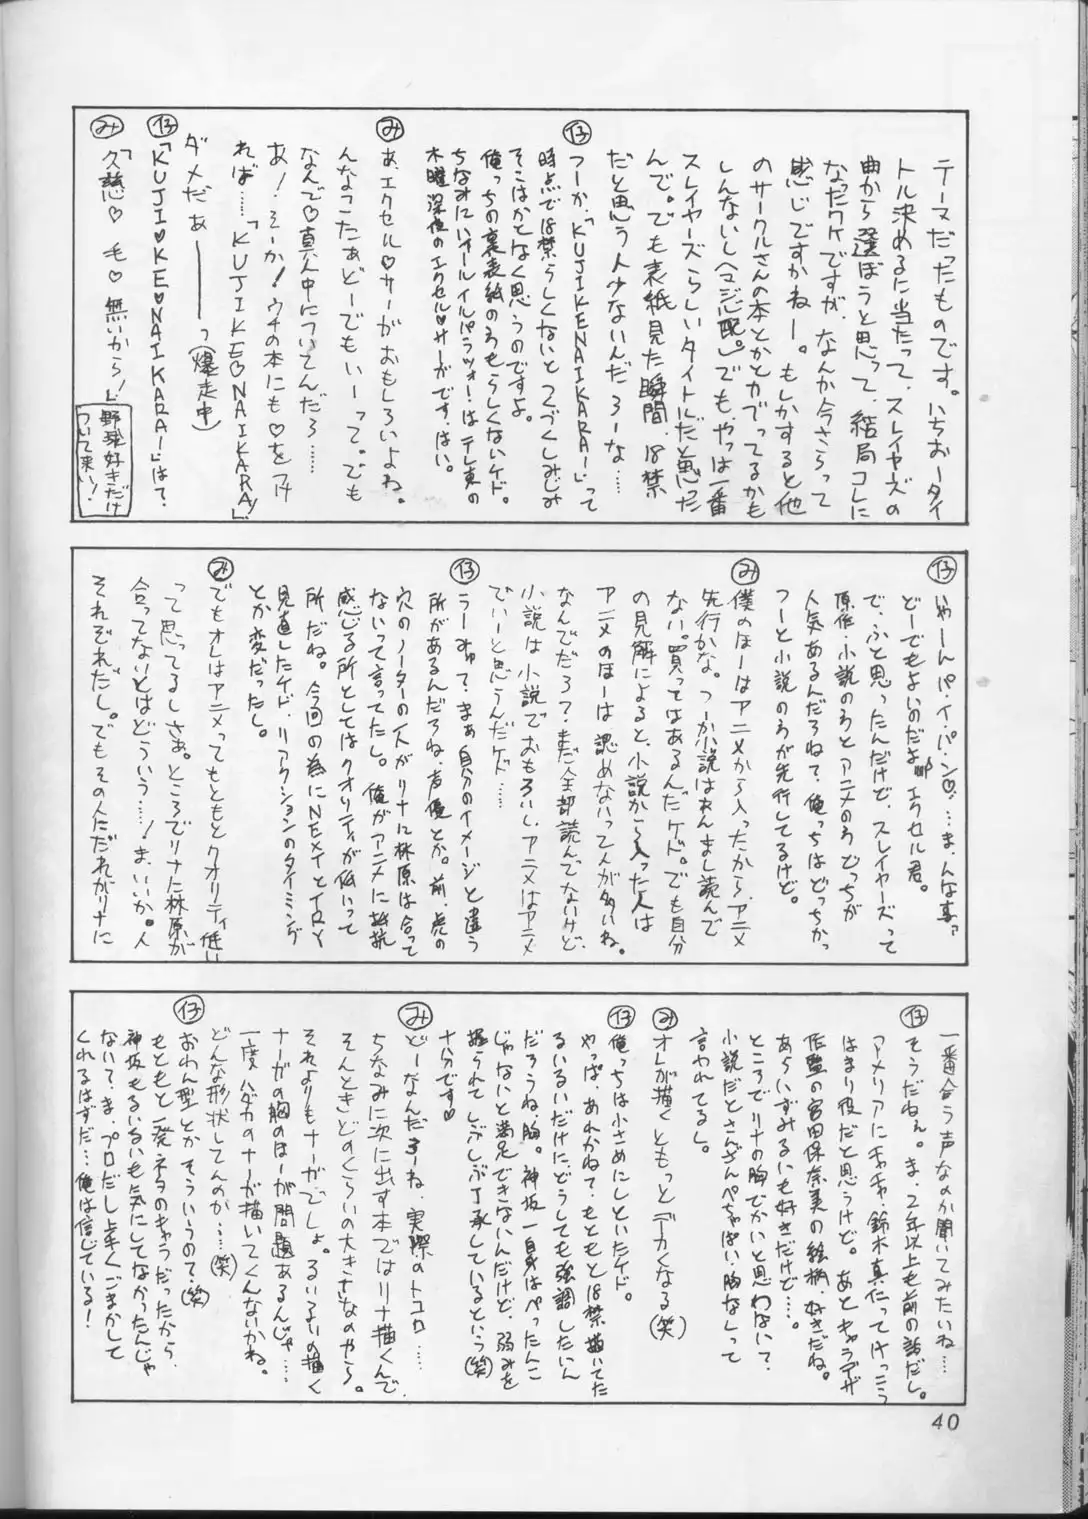 テーマだったものです。いちおータイ
トル決めるに当たって、スレイヤーズの
曲から選ぼうと思って、結局コレに
なったワケですが、なんか今さらって
感じですかねー。もしかすると他
のサークルさんの本とかとカブってるかも
しんないし(マジ心配。)でも、やっぱ一番
スレイヤーズらしいタイトルだと思った
んで。でも表紙見た瞬間、18禁
だと思う人少ないんだろーな……
㋑つーか、「KUJIKENAIKARA!」って
時点で18禁らしくないとつくづくしみじみ
そこはかとなく思うのですよ。
俺っちの裏表紙のろもらしくないケド。
ちなみにハイールイルパラッツォ!はテレ東の
木曜深夜のエクセル♡サーガです、はい。
み あ、エクセル♡サーガおもしろいよね。
んなこたぁどーでもいーって。でも
なんで♡真ん中についてんだろ……
あ!そーか!ウチの本にも♡をつけ
れば……「KUJIKE♡NAIKARA!」
ダメだぁ―――っ(爆走中)
仔「KUJI♡KE♡NAIKARA!」は?
み「久慈♡毛♡無いから!」
野球好きだけ
ついて来い!
仔 いやーん、パ・イ・パ・ン♡……ま、んな事
どーでもよいのだよ エクセル君。
で、ふと思ったんだけど、スレイヤーズって
原作・小説のろとアニメのろどっちが
人気あるんだろね?俺っちはどっちかっ
つーと小説のろが先行してるけど。
み 僕のほーはアニメから入ったから、アニメ
先行かな。つーか小説はあんまし読んで
ない。買ってはあるんだケド。でも自分
の見解によると、小説から入った人は
アニメのほーは認めないって人が多いね。
なんでだろ?まだ全部読んでないけど、
小説は小説でおもろいし、アニメはアニメ
でいーと思うんだケド……
仔 うーみゅ?まぁ自分のイメージと違う
所があるんだろね、声優とか。前、虎の
穴のノーターの人がリナに林原は合って
ないって言ってたし。俺がアニメに抵抗
感じる所としてはクオリティが低いって
所だね。今回の為にNEXTとTRY
見直したケド、リアクションのタイミング
とか変だったし。
み でもオレはアニメってもともとクオリティ低い
って思ってるしさぁ。ところでリナた林原が
合ってないとはどういう……!ま、いいか。人
それぞれだし。でもその人だれがリナに
一番合う声なのか聞いてみたいね…
仔 そうだねぇ。ま、2年以上も前の話だし。
アメリアにチャチャ、鈴木真仁ってけっこう
はまり役だと思うけど。あとキャラデザ
作監の宮田保奈美の絵柄、好きだね。
あらいずみるいも好きだけど…。
ところでリナの胸でかいと思わない?
小説だとさんざんぺちゃぱい、胸なしって
言われてるし。
み オレが描くともっとデーカくなる(笑)
仔 俺っちは小さめにしといたケド。
やっぱ、あれかね?もともと18禁描いてた
るいるいだけに、どうしても強調したいん
だろうね、胸。神坂一自身はぺったんこ
じゃないと満足できないんだけど、弱みを
握られてしぶしぶ了承しているという(笑)
十分です♡
み どーなんだろーね、実際のトコロ……
ちなみに次に出す本ではリナ描くんで、
そんときどのくらいの大きさなのやら。
それよりもナーガでしょ。るいるいの描く
ナーガの胸のほーが問題あるんじゃ……
一度ハダカのナーガ描いてくんないかね。
どんな形状してんのか……(笑)
仔 おわん型とかそういうので?(笑)
もともと一発ネタのキャラだったから、
神坂もるいるいも気にしてなかったんじゃ
ない?ま、プロだし上手くごまかして
くれるはずだ…俺は信じている!
40